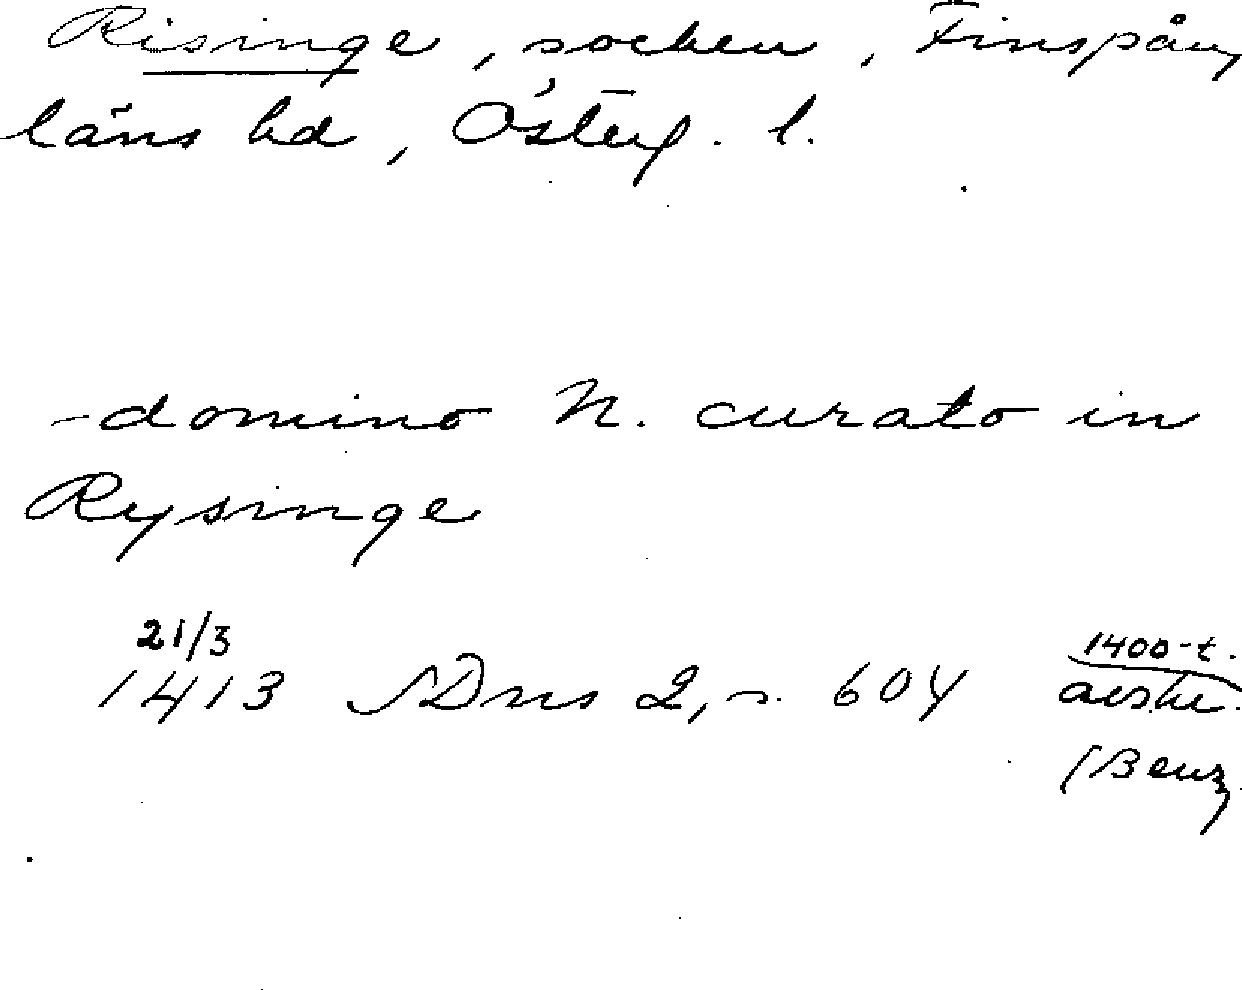 Risinge, socken, Finspång
läns hd, Österg. l.
-domino N. curato in
Rysinge
21/3
1413 SDns 2, s. 604
1400-t.
avskr.
(Benz